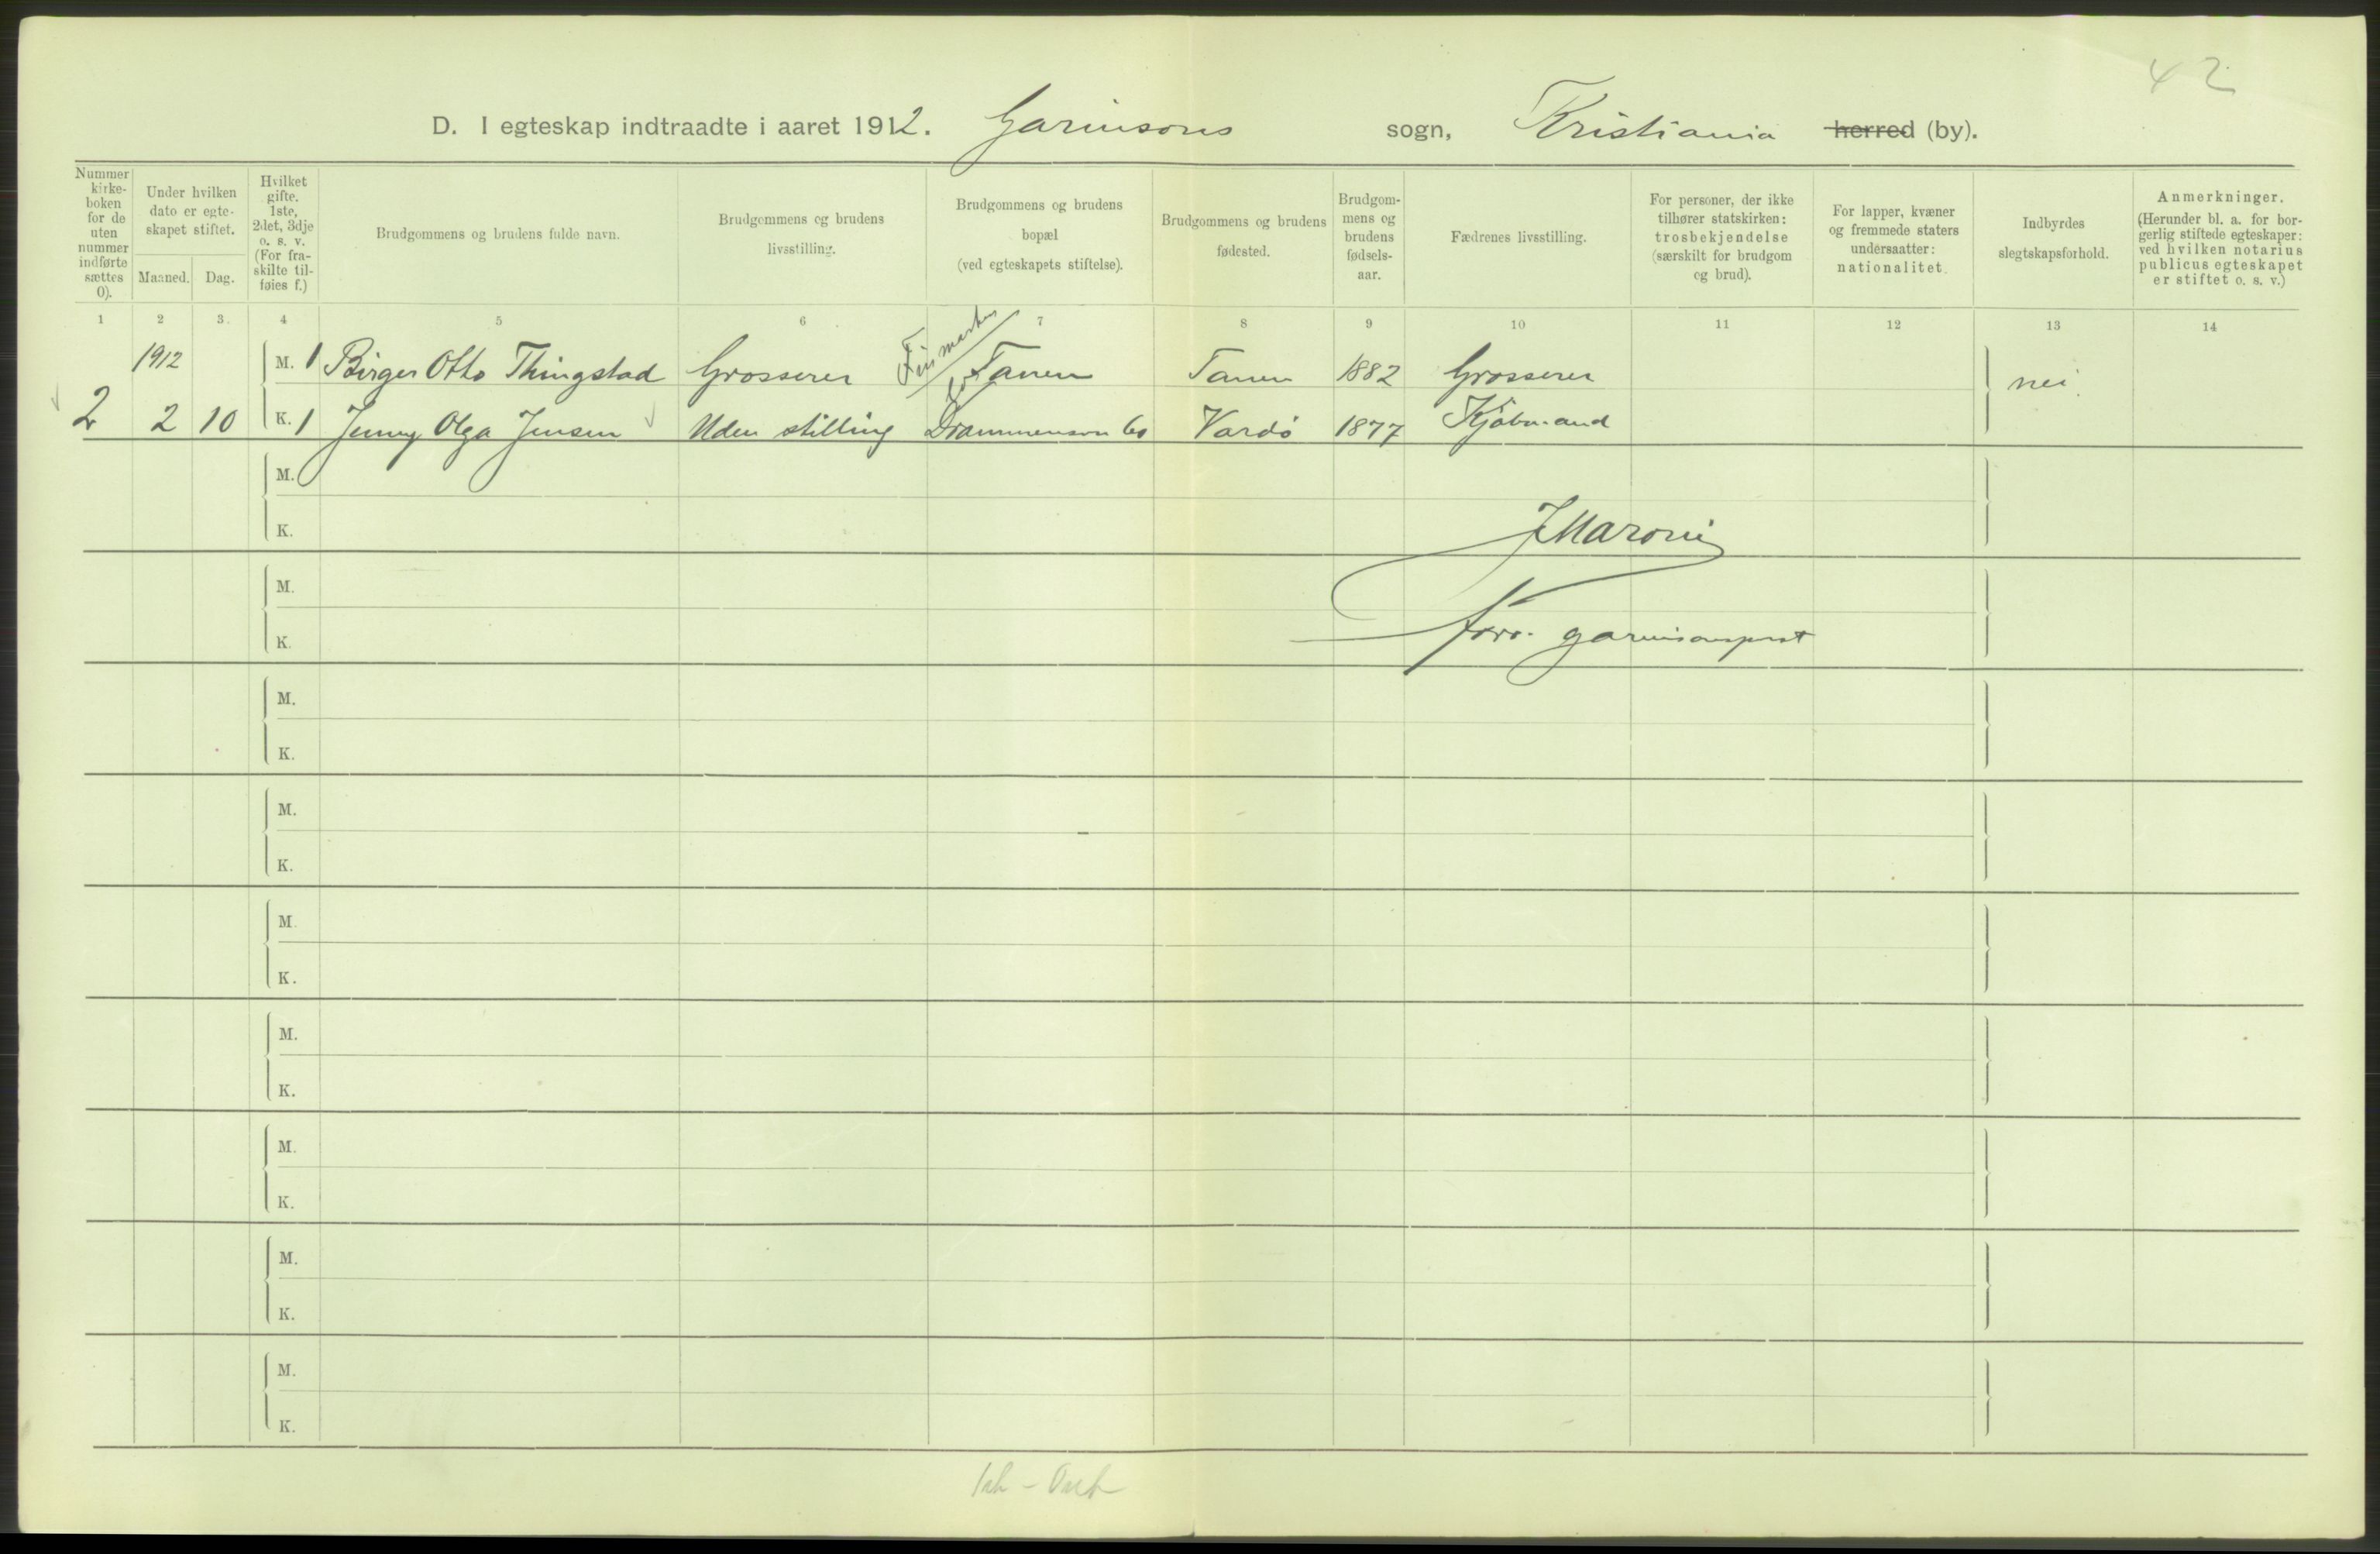 42
D. I egteskap indtraadte i aaret 1912. Garnisons sogn, Kristiania herred (by).
Nummer kirke-boken for de uten nummer indførte sættes 0).
Under hvilken dato er egte-skapet stiftet.
Maaned. Dag.
Hvilket gifte. 1ste, 2det, 3dje o. s. v. (For fra-skilte til-føies f.)
Brudgommens og brudens fulde navn.
Brudgommens og brudens livsstilling.
Brudgommens og brudens bopæl (ved egteskapets stiftelse).
Brudgommens og brudens fødested.
Brudgom-mens og brudens fødsels-aar.
Fædrenes livsstilling.
For personer, der ikke tilhører statskirken: trosbekjendelse (særskilt for brudgom og brud).
For lapper, kvæner og fremmede staters undersaatter: nationalitet.
Indbyrdes slegtskapsforhold.
Anmerkninger. (Herunder bl. a. for bor-gerlig stiftede egteskaper: ved hvilken notarius publicus egteskapet er stiftet o. s. v.)
1 2 3. 4 5 6 7 8 9 10 11 12 13 14
1912 M. 1 Birger Otto Thingstad Grosserer Finmarken Tanen Tanen 1882 Grosserer nei.
2 2 10 K. 1 Jenny Olga Jensen Uden stilling Drammensvn 60 Vardö 1877 Kjøbmand
M.
K.
JMaroni
M.
K. garnisonsprest
M.
K.
M.
K.
M.
K.
M.
K.
M.
K.
M.
K.
M.
K.